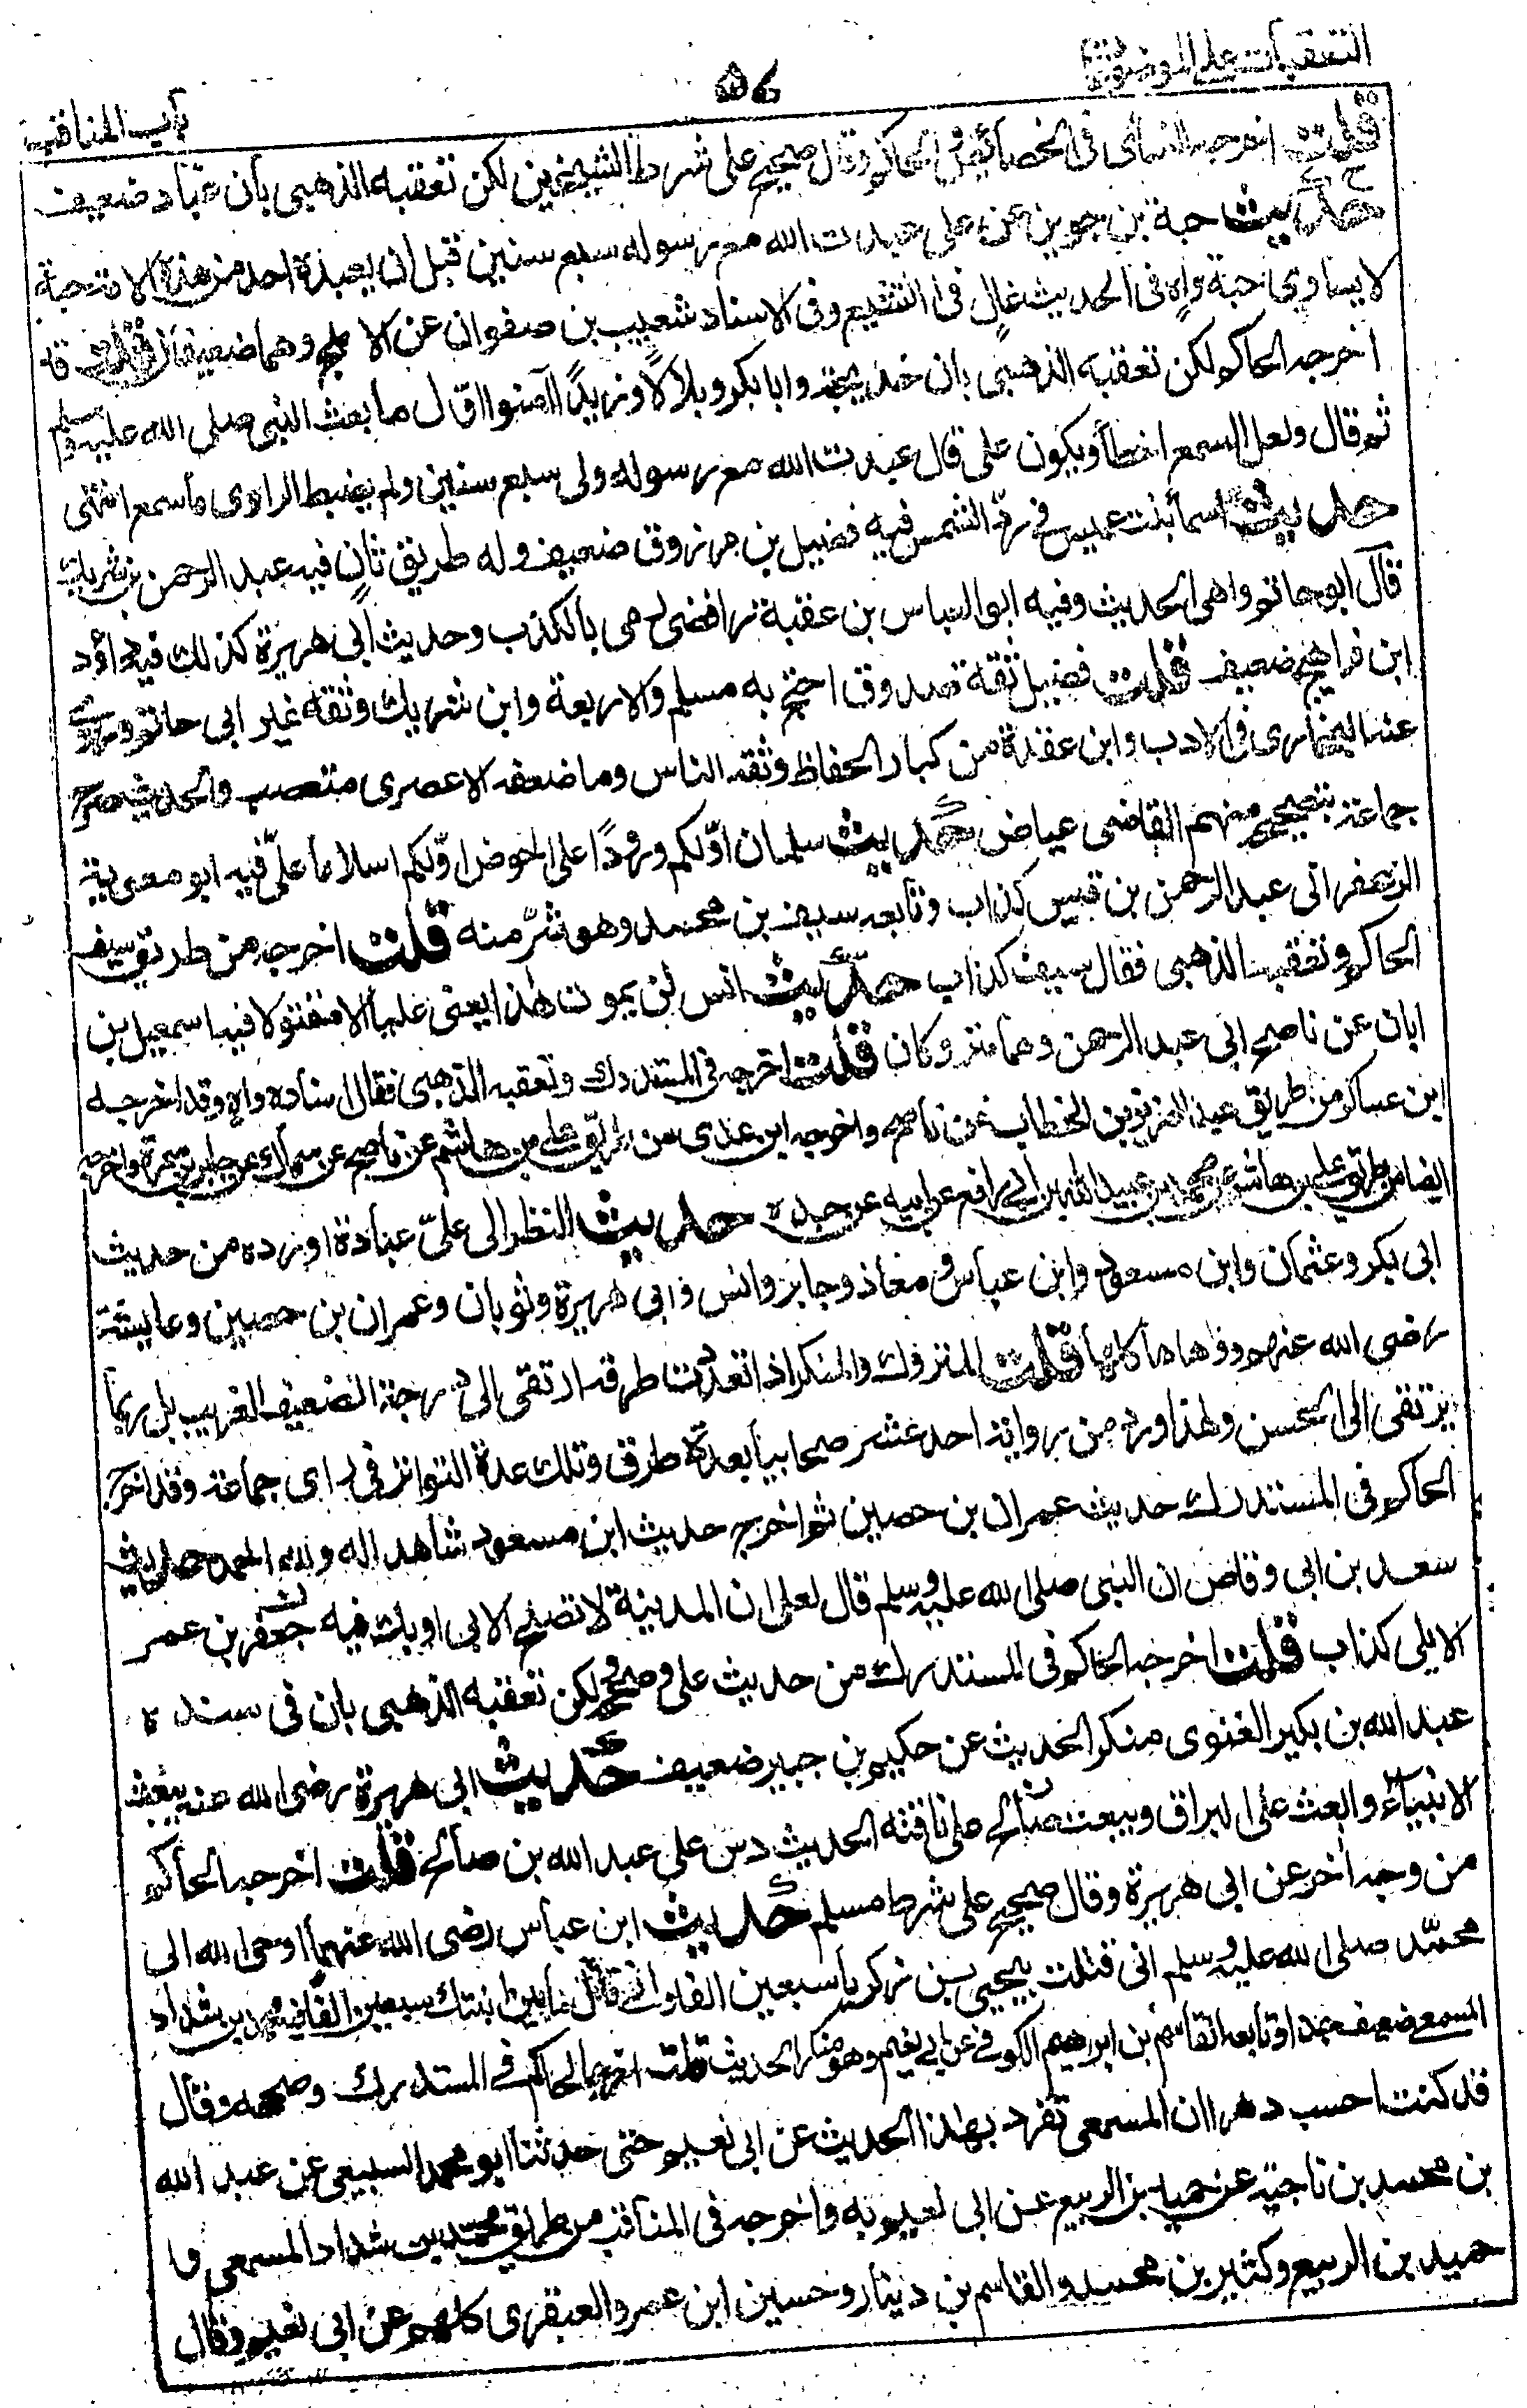 التعقبات على الموضوعات
٥٧
باب المناقب
قلت اخرجه النسائى فى الخصائص والحاكم وقال صحيح على شرط الشيخين لكن تعقبه الذهبى بأن عباد ضعيف
حديث حبة بن جوين عن على عبدت الله مع رسوله سبع سنين قبل ان يعبده احد من هذه الامة حبة
لا يساوى حبة واه فى الحديث غال فى التشيع وفى الاسناد شعيب بن صفوان عن الاجلح وهما ضعيفان قلت قد
اخرجه الحاكم لكن تعقبه الذهبى بان خديجة وابا بكر وبلالا وزيدًا آمنوا اول ما بعث النبى صلى الله عليه وسلم
ثم قال ولعل السمع اخطأ ويكون على قال عبدت الله مع رسوله ولى سبع سنين ولم يضبط الراوى ما سمع انتهى
حديث اسما بنت عميس فى رد الشمس فيه فضيل بن مرزوق ضعيف وله طريق ثانٍ فيه عبد الرحمن بن شريك
قال ابو حاتم واهى الحديث وفيه ابو العباس بن عقبة رافضى رمى بالكذب وحديث ابى هريرة كذلك فيه داؤد
ابن فراهيج ضعيف قلت فضيل ثقة صدوق احتج به مسلم والاربعة وابن شريك وثقه غير ابى حاتم وروى
عنه البخارى فى الادب وابن عقدة من كبار الحفاظ وثقه الناس وما ضعفه الا عصرى متعصب والحديث صرح
جماعة بتصحيحه منهم القاضى عياض حديث سلمان اوّلكم ورودًا على الحوض اوّلكم اسلاما علىّ فيه ابو معوية
الزعفرانى عبد الرحمن بن قيس كذاب وتابعه سيف بن محمد وهو شرّ منه قلت اخرجه من طريق سيف
الحاكم وتعقبه الذهبى فقال سيف كذاب حديث انس لن يموت هذا يعنى عليا الا مقتولا فيه اسمعيل بن
ابان عن ناصح ابى عبد الرحمن وهما متروكان قلت اخرجه فى المستدرك وتعقبه الذهبى فقال اسناده واه وقد اخرجه
ابن عساكر من طريق عبد العزيز بن الخطاب عن ناصح واخرجه ابن عدى من طريق على بن هاشم عن ناصح عن سماك عن جابر بن سمرة واخرجه
ايضا من طريق على بن هاشم عن محمد بن عبيد الله بن ابى رافع عن ابيه عن جده حديث النظر الى علىّ عبادة اورده من حديث
ابى بكر وعثمان وابن مسعود وابن عباس ومعاذ وجابر وانس وابى هريرة وثوبان وعمران بن حصين وعايشة
رضى الله عنهم ووهاها كلها قلت المتروك والمنكر اذا تعددت طرقه ارتقى الى درجة الضعيف الغريب بل ربما
يرتقى الى الحسن ولهذا ورد من رواية احد عشر صحابيا بعدة طرق وتلك عدة التواتر فى رأى جماعة وقد اخرج
الحاكم فى المستدرك حديث عمران بن حصين ثم اخرج حديث ابن مسعود شاهدا له ولله الحمد حديث
سعد بن ابى وقاص ان النبى صلى الله عليه وسلم قال لعلى ان المدينة لا تصلح الا بى او بك فيه جعفر بن عمر
الايلى كذاب قلت اخرجه الحاكم فى المستدرك من حديث على وصححه لكن تعقبه الذهبى بان فى سنده
عبد الله بن بكير الغنوى منكر الحديث عن حكيم بن جبير ضعيف حديث ابى هريرة رضى الله عنه يبعث
الانبياء وابعث على البراق ويبعث صالح على ناقته الحديث دس على عبد الله بن صالح قلت اخرجه الحاكم
من وجه أخر عن ابى هريرة وقال صحيح على شرط مسلم حديث ابن عباس رضى الله عنهما اوحى الله الى
محمّد صلى الله عليه وسلم انى قتلت بيحيى بن زكريا سبعين الفا وانى قاتل بابن ابنتك سبعين الفا فيه محمد بن شداد
المسمعى ضعيف جدا وتابعه القاسم بن ابرهيم الكوفى عن ابى نعيم وهو منكر الحديث قلت اخرجه الحاكم فى المستدرك وصححه وقال
قد كنت احسب دهرا ان المسمعى تفرد بهذا الحديث عن ابى نعيم حتى حدثنا ابو محمد السبيعى عن عبد الله
بن محمد بن ناجية عن حميد بن الربيع عن ابى نعيم به واخرجه فى المناقب من طريق محمد بن شداد المسمعى و
حميد بن الربيع وكثير بن محمد والقاسم بن دينار وحسين ابن عمرو العنقزى كلهم عن ابى نعيم وقال